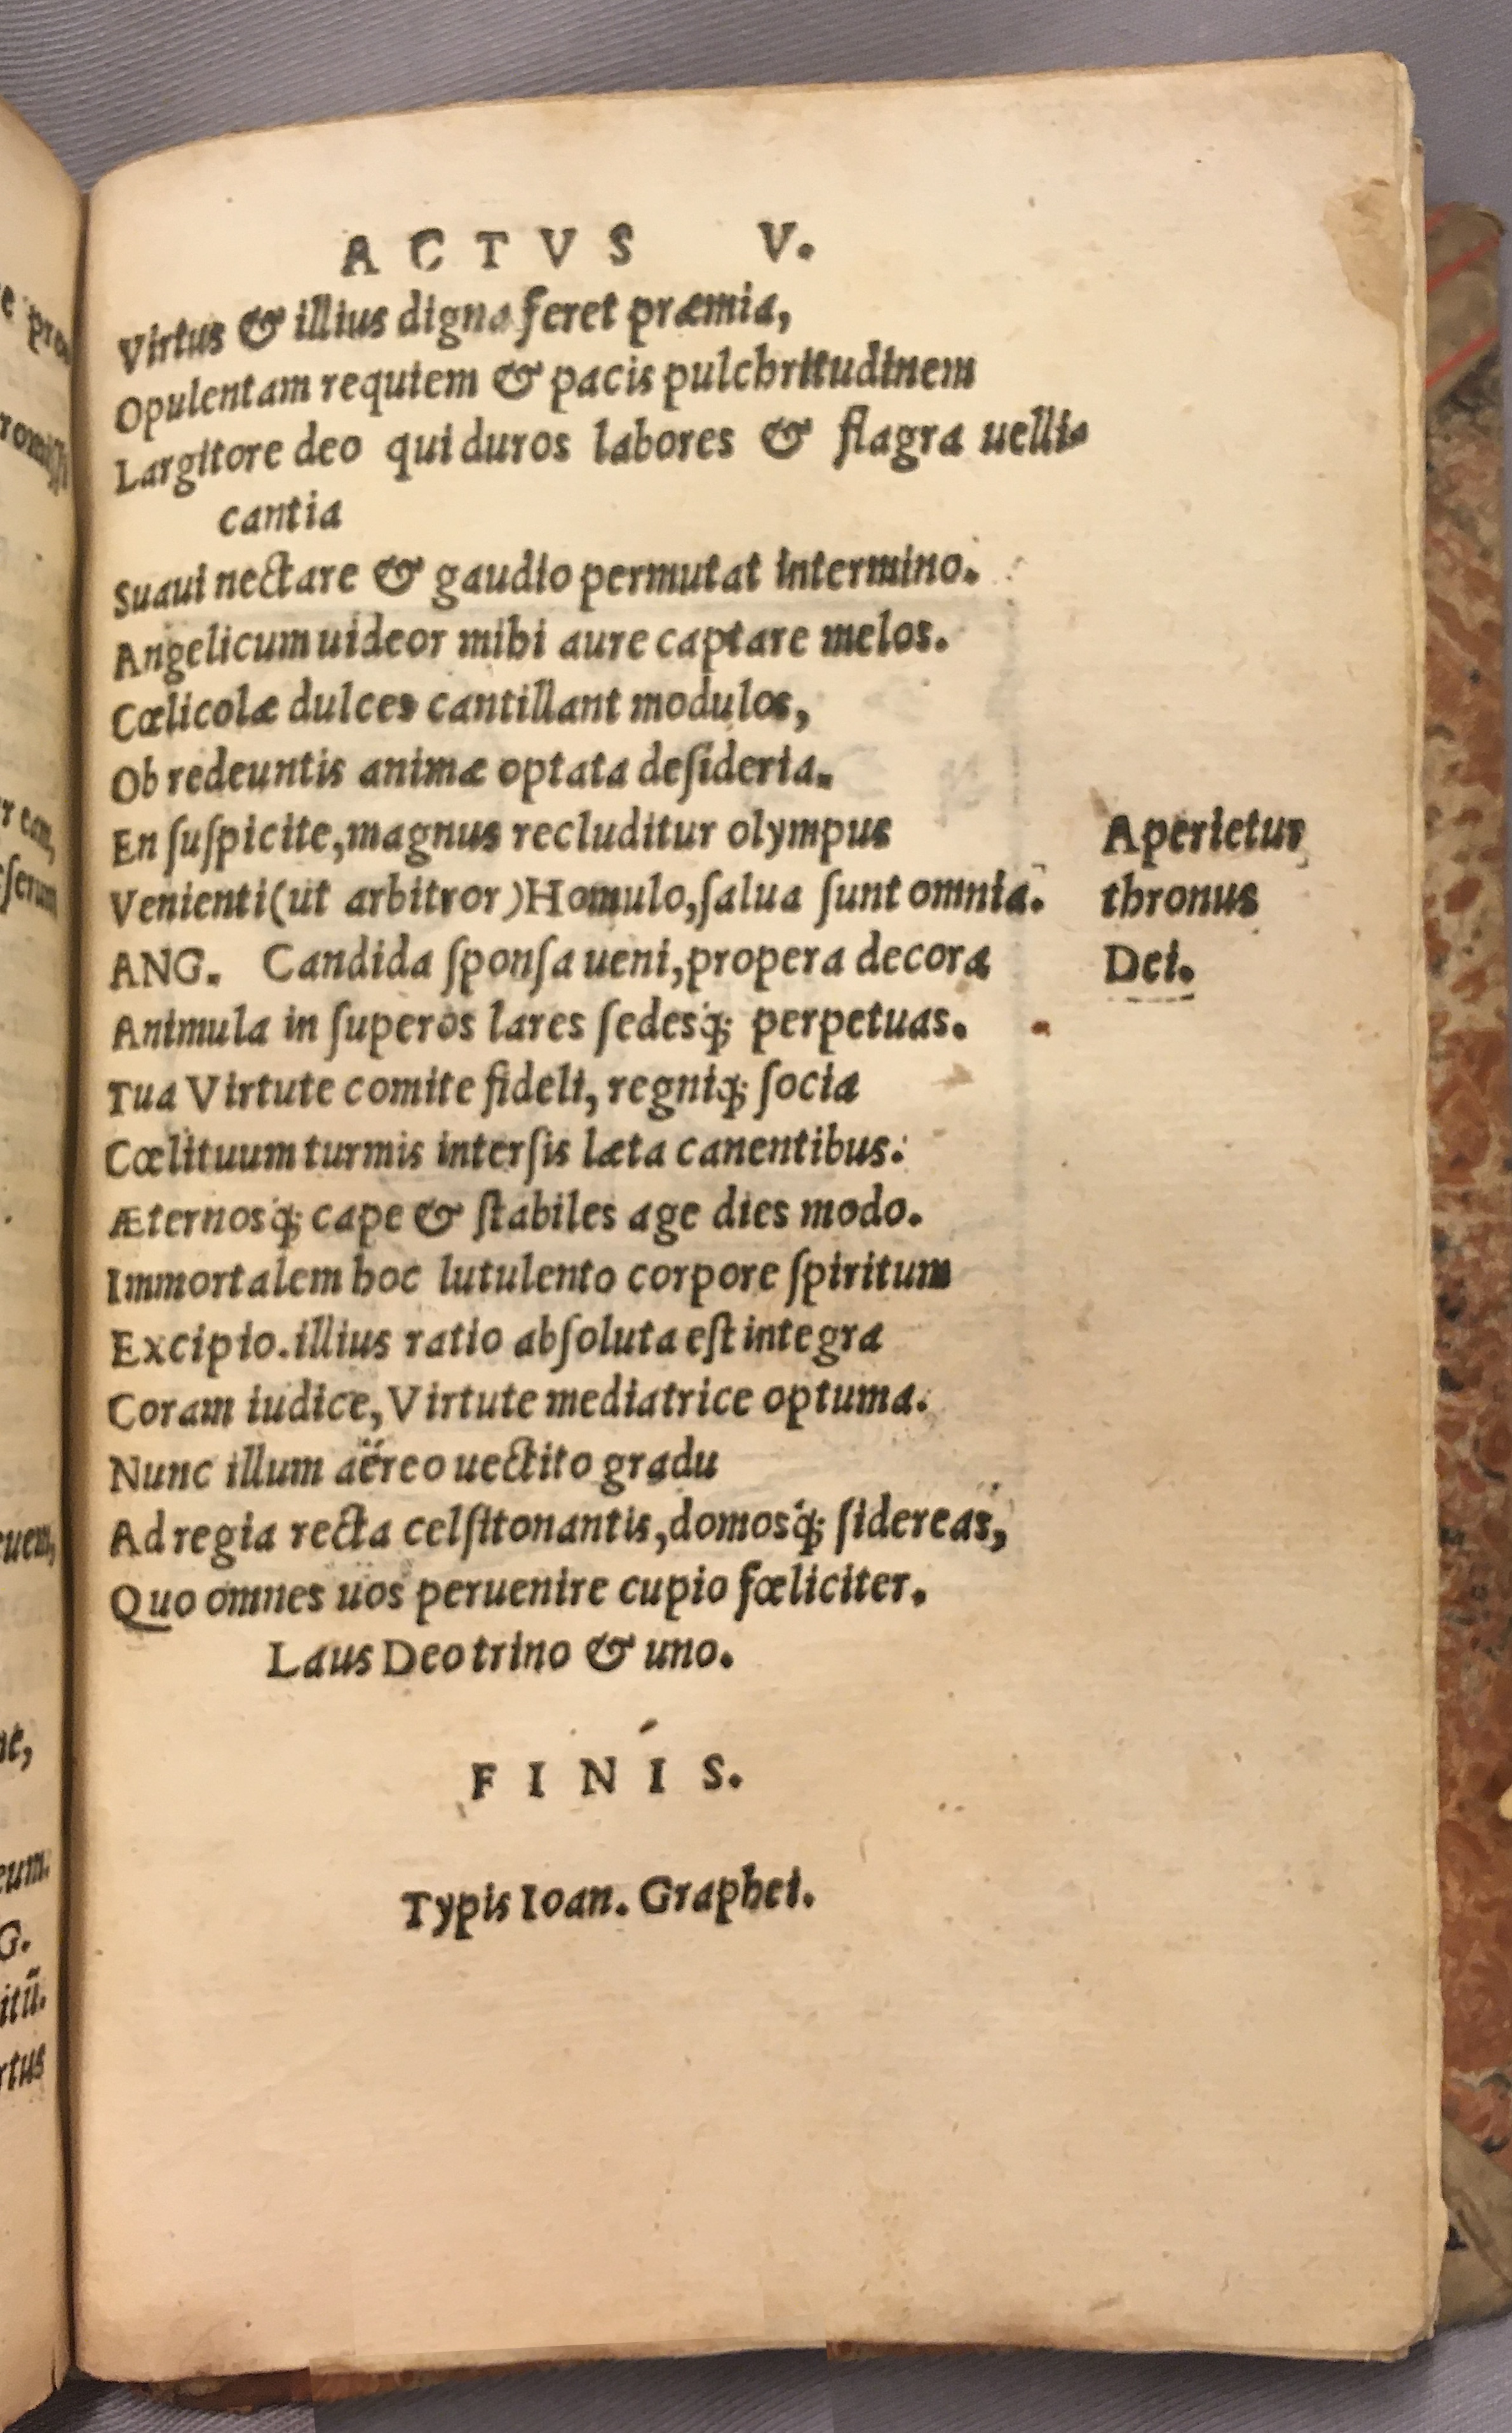 ACTVS V.
Virtus & illius digna feret præmia,
Opulentam requiem & pacis pulchritudinem
Largitore deo qui duros labores & flagra uelli-
cantia
Suaui nectare & gaudio permutat intermino.
Angelicum uideor mihi aure captare melos.
Cœlicolæ dulces cantillant modulos,
Ob redeuntis animæ optata deſideria.
En ſuſpicite, magnus recluditur olympus
Venienti (ut arbitror) Homulo, ſalua ſunt omnia.
Aperietur
thronus
Dei.
ANG. Candida ſponſa ueni, propera decora
Animula in ſuperos lares ſedesq; perpetuas.
Tua Virtute comite fideli, regniq; ſocia
Cœlituum turmis interſis læta canentibus:
Æternosq; cape & ſtabiles age dies modo.
Immortalem hoc lutulento corpore ſpiritum
Excipio. illius ratio abſoluta eſt integra
Coram iudice, Virtute mediatrice optuma.
Nunc illum aëreo uectito gradu
Ad regia recta celſitonantis, domosq; ſidereas,
Quo omnes uos peruenire cupio fœliciter.
Laus Deo trino & uno.
FINIS.
Typis Ioan. Graphei.